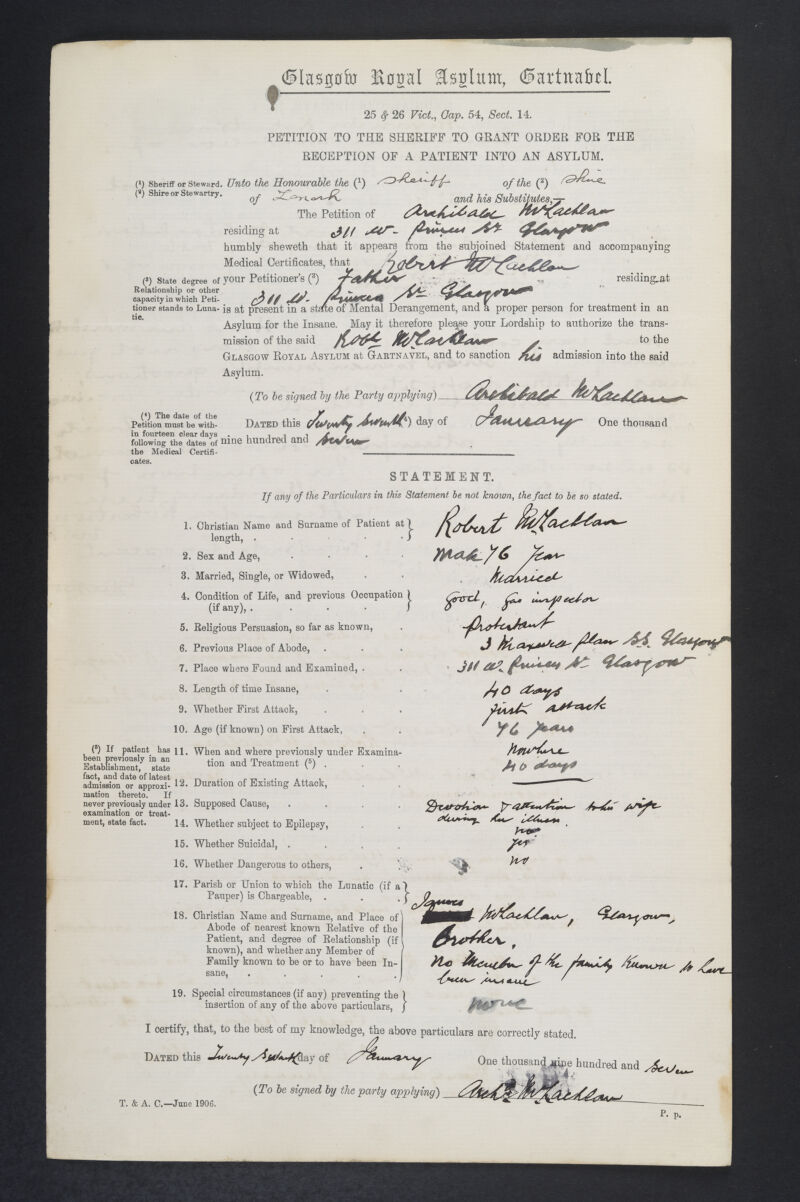 Glasgow Royal Asylum, Gartnavel.
25 & 26 Vict., Cap. 54, Sect. 14.
PETITION TO THE SHERIFF TO GRANT ORDER FOR THE
RECEPTION OF A PATIENT INTO AN ASYLUM.
(1) Sheriff or Steward.
(2) Shire or Stewartry.
Unto the Honourable the (1) Sheriff of the (2) Shire
of Lanark and his Substitutes,—
The Petition of Archibald McLachlan
residing at 311 W. Princes St. Glasgow
humbly sheweth that it appears from the subjoined Statement and accompanying
Medical Certificates, that Robert McLachlan
(3) State degree of
Relationship or other
capacity in which Peti-
tioner stands to Luna-
tic.
your Petitioner's (3) Father residing at
311 W. Princes St. Glasgow
is at present in a state of Mental Derangement, and a proper person for treatment in an
Asylum for the Insane. May it therefore please your Lordship to authorize the trans-
mission of the said Robt. McLachlan to the
GLASGOW ROYAL ASYLUM at GARTNAVEL, and to sanction his admission into the said
Asylum.
(To be signed by the Party applying) Archibald McLachlan
(4) The date of the
Petition must be with-
in fourteen clear days
following the dates of
the Medical Certifi-
cates.
DATED this Twenty Seventh (4) day of January One thousand
nine hundred and seven
STATEMENT.
If any of the Particulars in this Statement be not known, the fact to be so stated.
1. Christian Name and Surname of Patient at
length, . . . . . Robert McLachlan
2. Sex and Age, . . . . Male 76 Year
3. Married, Single, or Widowed, . . Married
4. Condition of Life, and previous Occupation
(if any), . . . . . good, gas inspector
5. Religious Persuasion, so far as known, . Protestant
6. Previous Place of Abode, . . . 3 Maxwell S.S. Glasgow
7. Place where Found and Examined, . . 311 W. Princes St. Glasgow
8. Length of time Insane, . . . 40 days
9. Whether First Attack, . . . first attack
10. Age (if known) on First Attack, . . 76 years
(5) If patient has
been previously in an
Establishment, state
fact, and date of latest
admission or approxi-
mation thereto. If
never previously under
examination or treat-
ment, state fact.
11. When and where previously under Examina-
tion and Treatment (5) . . . Nowhere
12. Duration of Existing Attack, . . 40 days
13. Supposed Cause, . . . . Devotion & attention to his wife
during her illness.
14. Whether subject to Epilepsy, . . no
15. Whether Suicidal, . . . . yes
16. Whether Dangerous to others, . . no
17. Parish or Union to which the Lunatic (if a
Pauper) is Chargeable, . . . .
18. Christian Name and Surname, and Place of
Abode of nearest known Relative of the
Patient, and degree of Relationship (if
known), and whether any Member of
Family known to be or to have been In-
sane, . . . . .
James
McLachlan, Glasgow,
Brother.
No Member of the family known to have
been insane
19. Special circumstances (if any) preventing the
insertion of any of the above particulars, None
I certify, that, to the best of my knowledge, the above particulars are correctly stated.
DATED this Twenty Seventh day of January One thousand nine hundred and seven
(To be signed by the party applying) Archd. McLachlan
T. & A. C.—June 1906.
P. p.